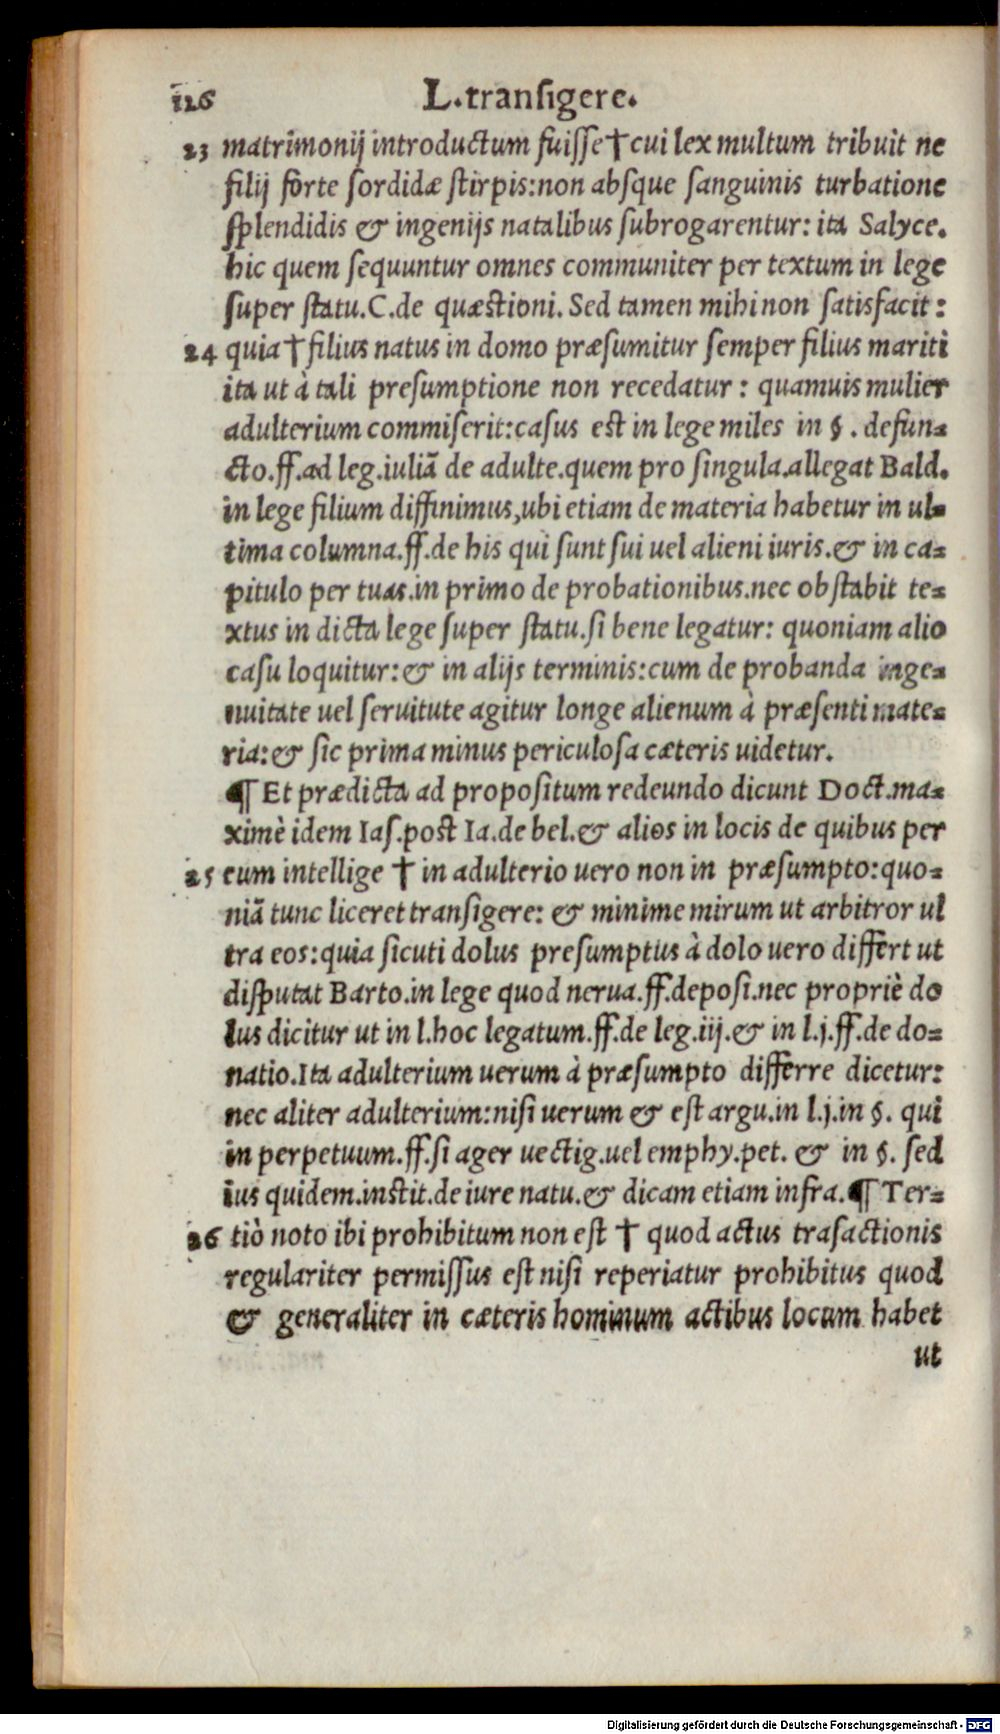 126 L. transigere.
23 matrimonij introductum fuisse † cui lex multum tribuit ne
filij forte sordidæ stirpis: non absque sanguinis turbatione
splendidis & ingenijs natalibus subrogarentur: ita Salyce.
hic quem sequuntur omnes communiter per textum in lege
super statu. C. de quæstioni. Sed tamen mihi non satisfacit:
24 quia † filius natus in domo præsumitur semper filius mariti
ita ut à tali presumptione non recedatur: quamuis mulier
adulterium commiserit: casus est in lege miles in §. defun=
cto. ff. ad leg. iuliā de adulte. quem pro singula. allegat Bald.
in lege filium diffinimus, ubi etiam de materia habetur in ul=
tima columna. ff. de his qui sunt sui uel alieni iuris. & in ca=
pitulo per tuas. in primo de probationibus. nec obstabit te=
xtus in dicta lege super statu. si bene legatur: quoniam alio
casu loquitur: & in alijs terminis: cum de probanda inge=
nuitate uel seruitute agitur longe alienum à præsenti mate=
ria: & sic prima minus periculosa cæteris uidetur.
¶ Et prædicta ad propositum redeundo dicunt Doct. ma=
ximè idem Ias. post Ia. de bel. & alios in locis de quibus per
25 eum intellige † in adulterio uero non in præsumpto: quo=
niā tunc liceret transigere: & minime mirum ut arbitror ul
tra eos: quia sicuti dolus presumptus à dolo uero differt ut
disputat Barto. in lege quod nerua. ff. deposi. nec propriè do
lus dicitur ut in l. hoc legatum. ff. de leg. iij. & in l. j. ff. de do=
natio. Ita adulterium uerum à præsumpto differre dicetur:
nec aliter adulterium: nisi uerum & est argu. in l. j. in §. qui
in perpetuum. ff. si ager uectig. uel emphy. pet. & in §. sed
ius quidem. instit. de iure natu. & dicam etiam infra. ¶ Ter=
26 tiò noto ibi prohibitum non est † quod actus trasactionis
regulariter permissus est nisi reperiatur prohibitus quod
& generaliter in cæteris hominum actibus locum habet
ut
Digitalisierung gefördert durch die Deutsche Forschungsgemeinschaft - DFG